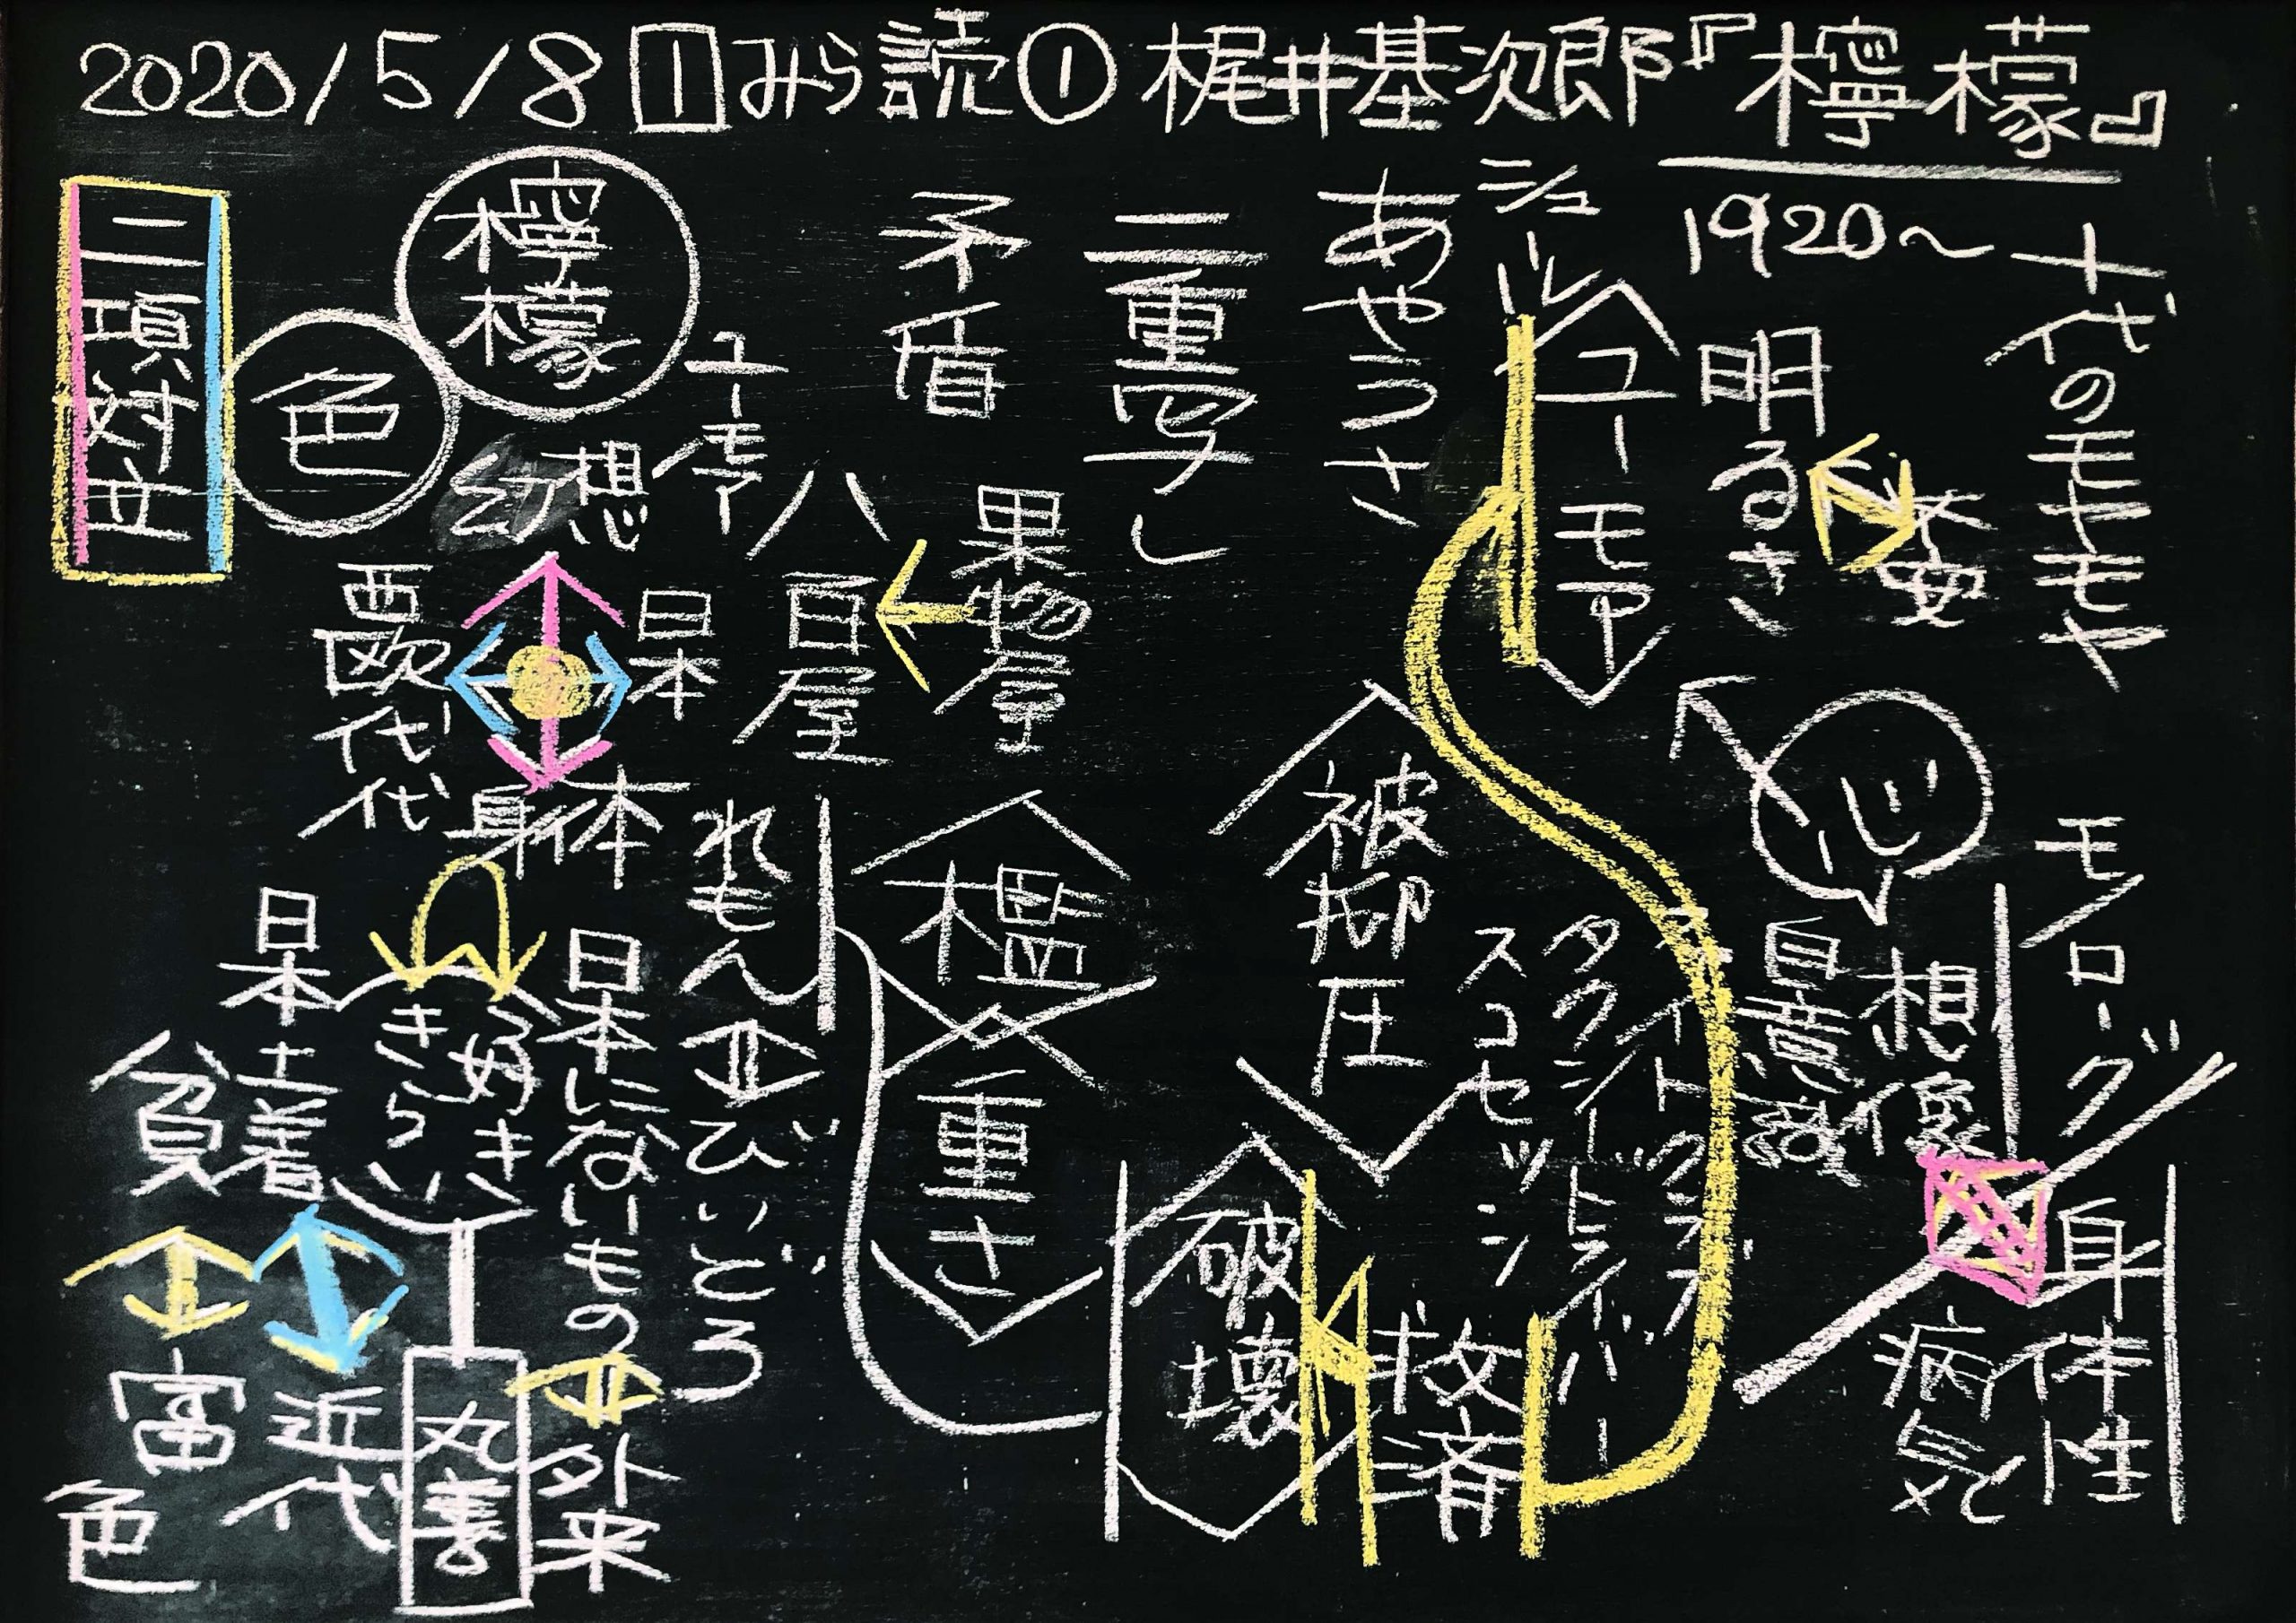 2020/5/8 1 みら読① 梶井基次郎『檸檬』
十代のモヤモヤ
1920～
不安
明るさ
シュール
ユーモア
あやうさ
二重写し
矛盾
果物屋
八百屋
ユーモア
檸檬
色
二項対立
幻想
日本
西欧
身体
モノローグ
心
想像
自意識
身体性
病気
タクシードライバー
スコセッシ
被抑圧
救済
破壊
檻
重さ
れもん
びいどろ
日本にないもの
外来
好き
きらい
丸善
日本
土着
近代
貧
富
色